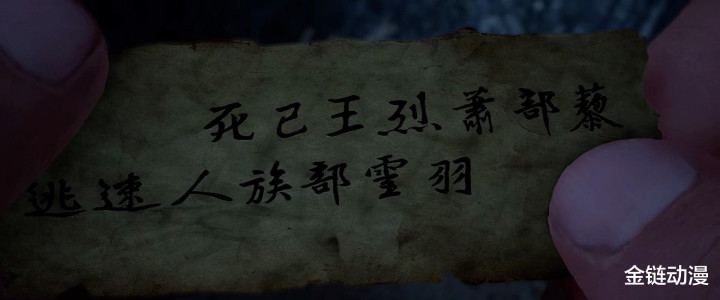 黎部蕭烈王已死
羽霊部族人速逃
金链动漫